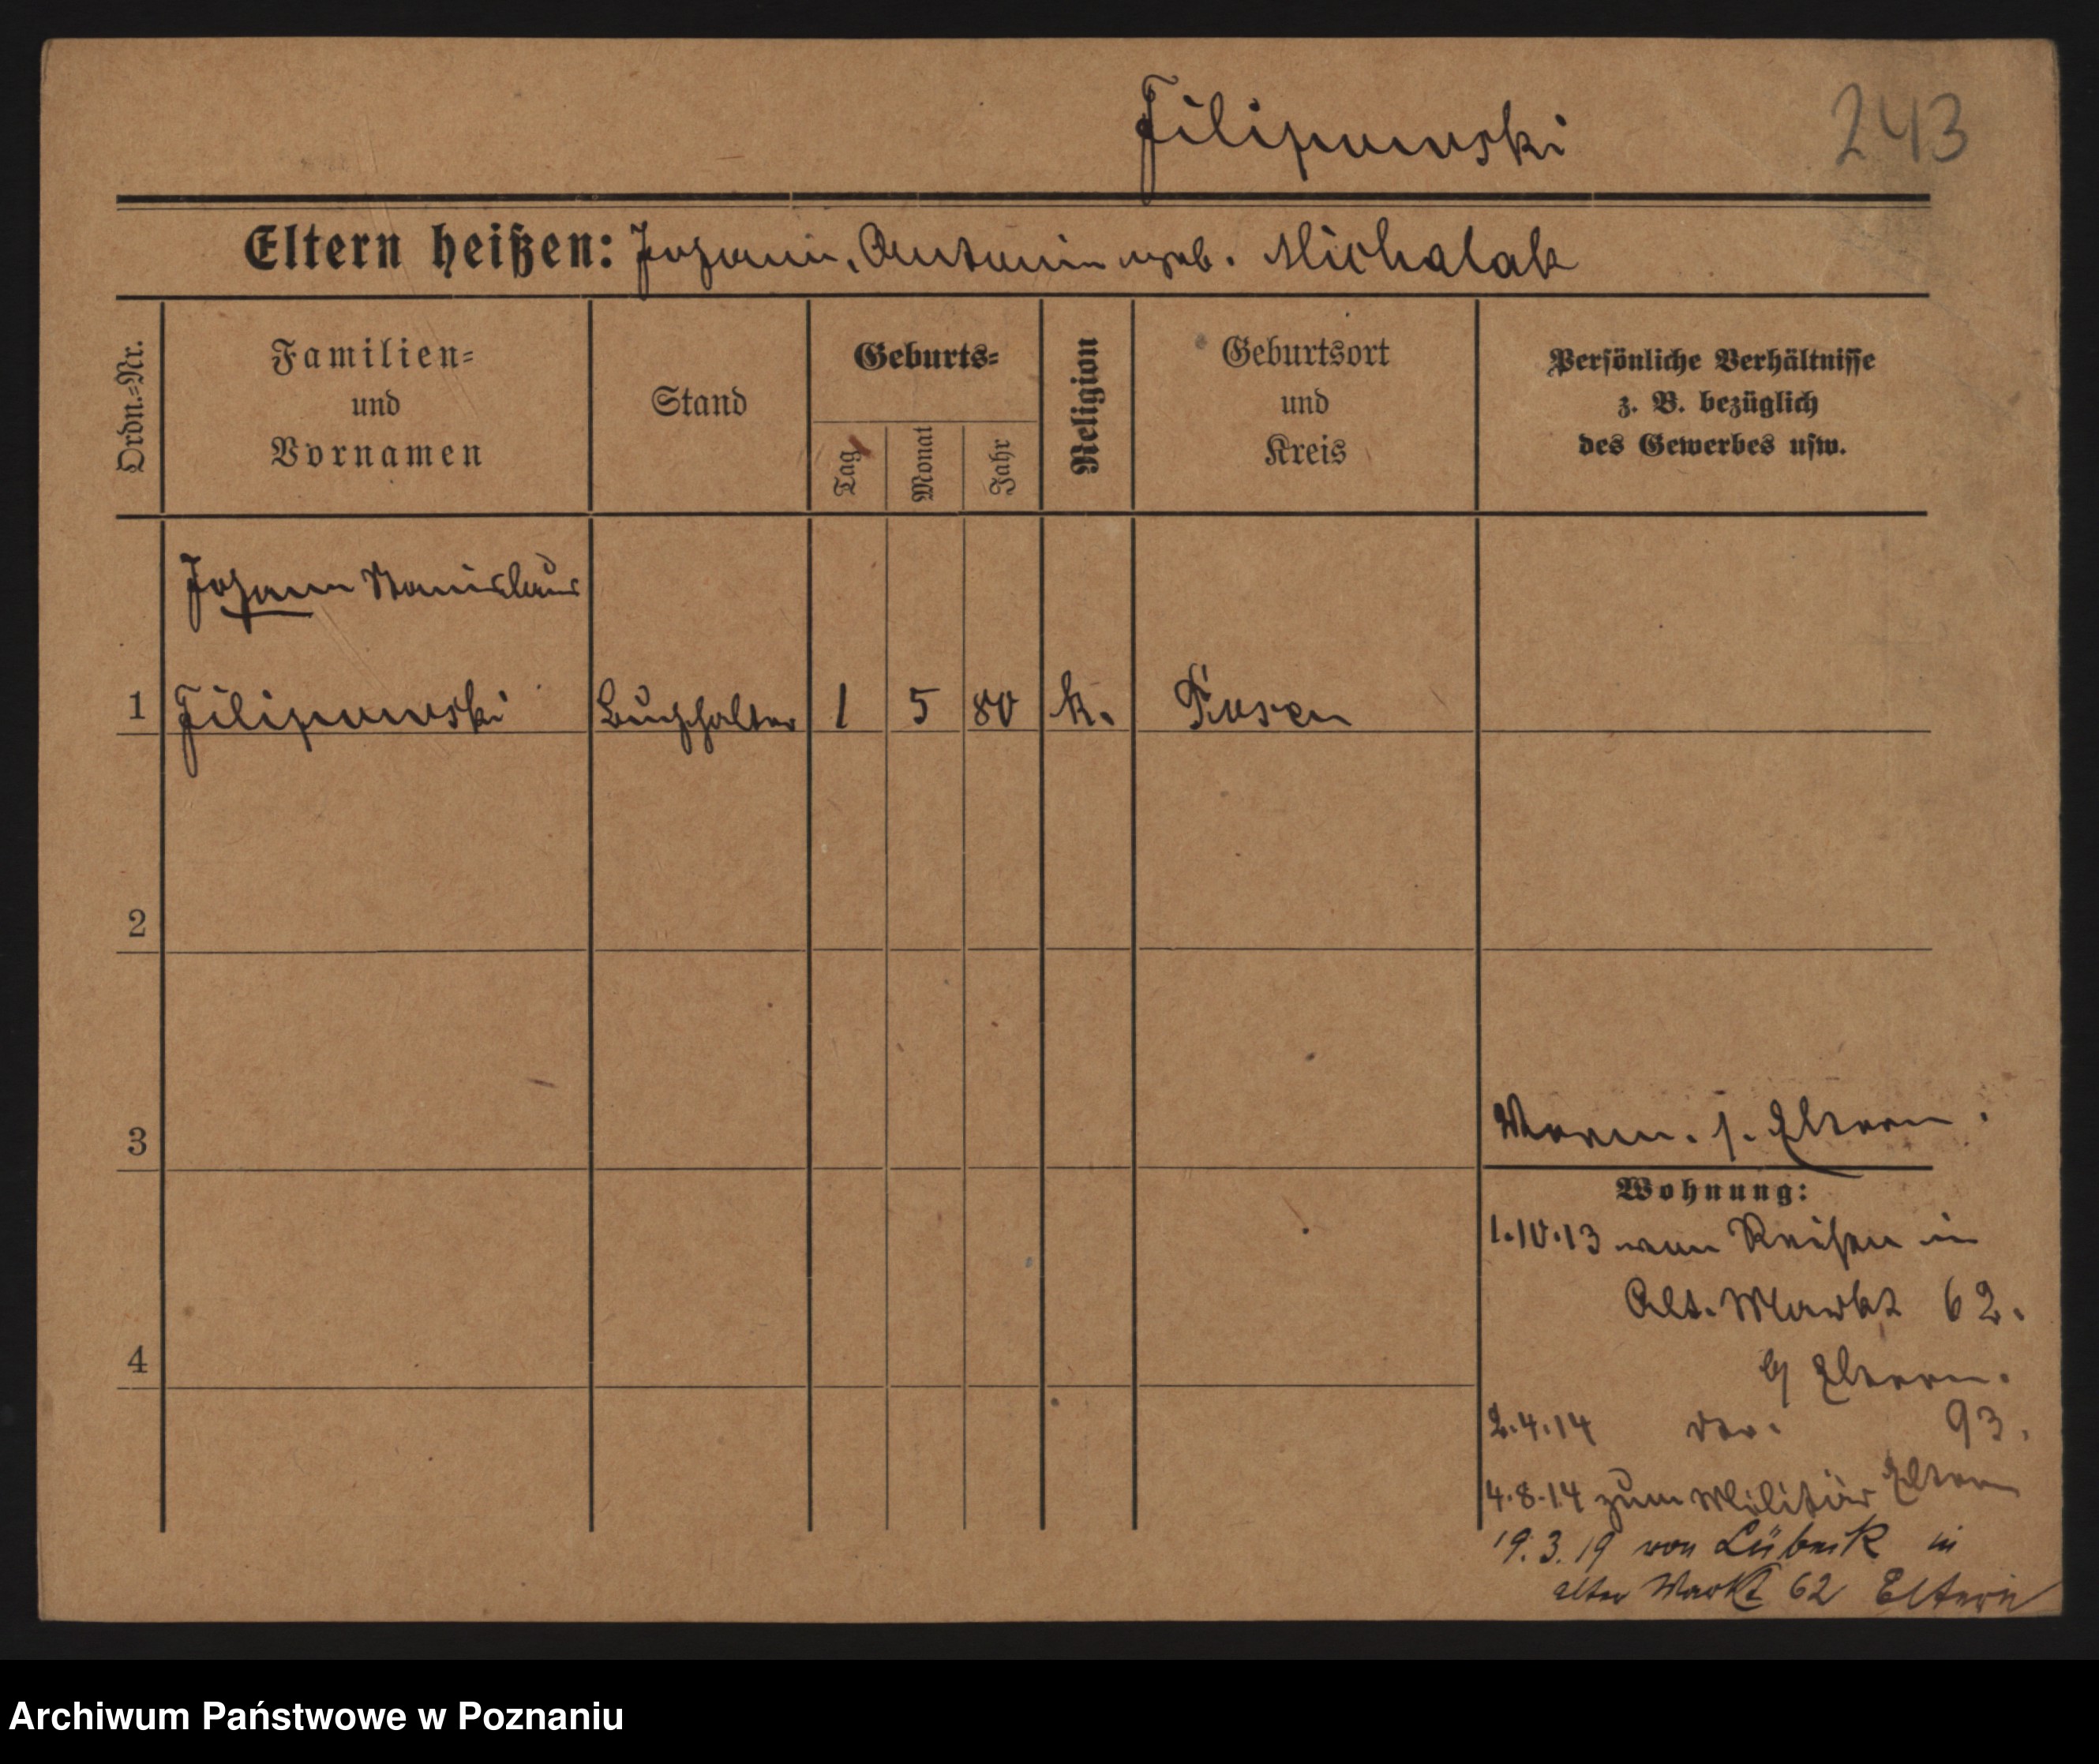 Filipowski 243
Eltern heißen: Johann, Antonin geb. Michalak
Ordn.=Nr.
Familien=
und
Vornamen
Stand
Geburts=
Tag
Monat
Jahr
Religion
Geburtsort
und
Kreis
Persönliche Verhältnisse
z. B. bezüglich
des Gewerbes usw.
Johann Stanislaus
1 Filipowski Buchhalter 1 5 80 k. Posen
2
3
Vorm. s. Eltern.
Wohnung:
1.10.13 von Reisen in
Alt. Markt 62.
b/ Eltern.
4
2.4.14 93.
4.8.14 zum Militär Eltern
19.3.19 von Lübeck in
alter Markt 62 Eltern
Archiwum Państwowe w Poznaniu